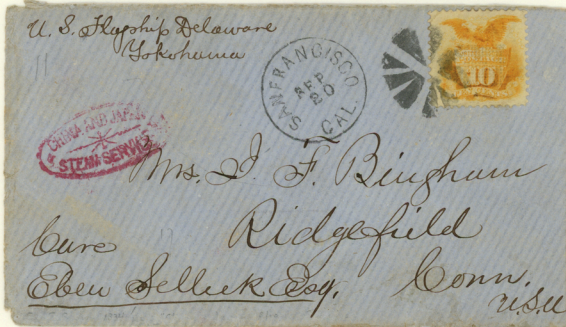 U. S. Flagship Delaware
Yokohama
SAN FRANCISCO
APR
20
CAL.
10
CHINA AND JAPAN
STEAM SERVICE
Mrs. I. F. Bingham
Ridgefield
Care
Eben Selleck Esq. Conn.
U.S.A